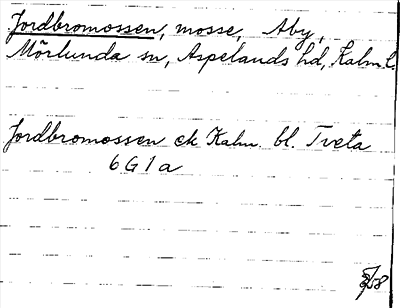 Jordbromossen, mosse, Åby,
Mörlunda sn, Aspelands hd, Kalm. l.
Jordbromossen ek Kalm. bl. Tveta
6 G 1 a